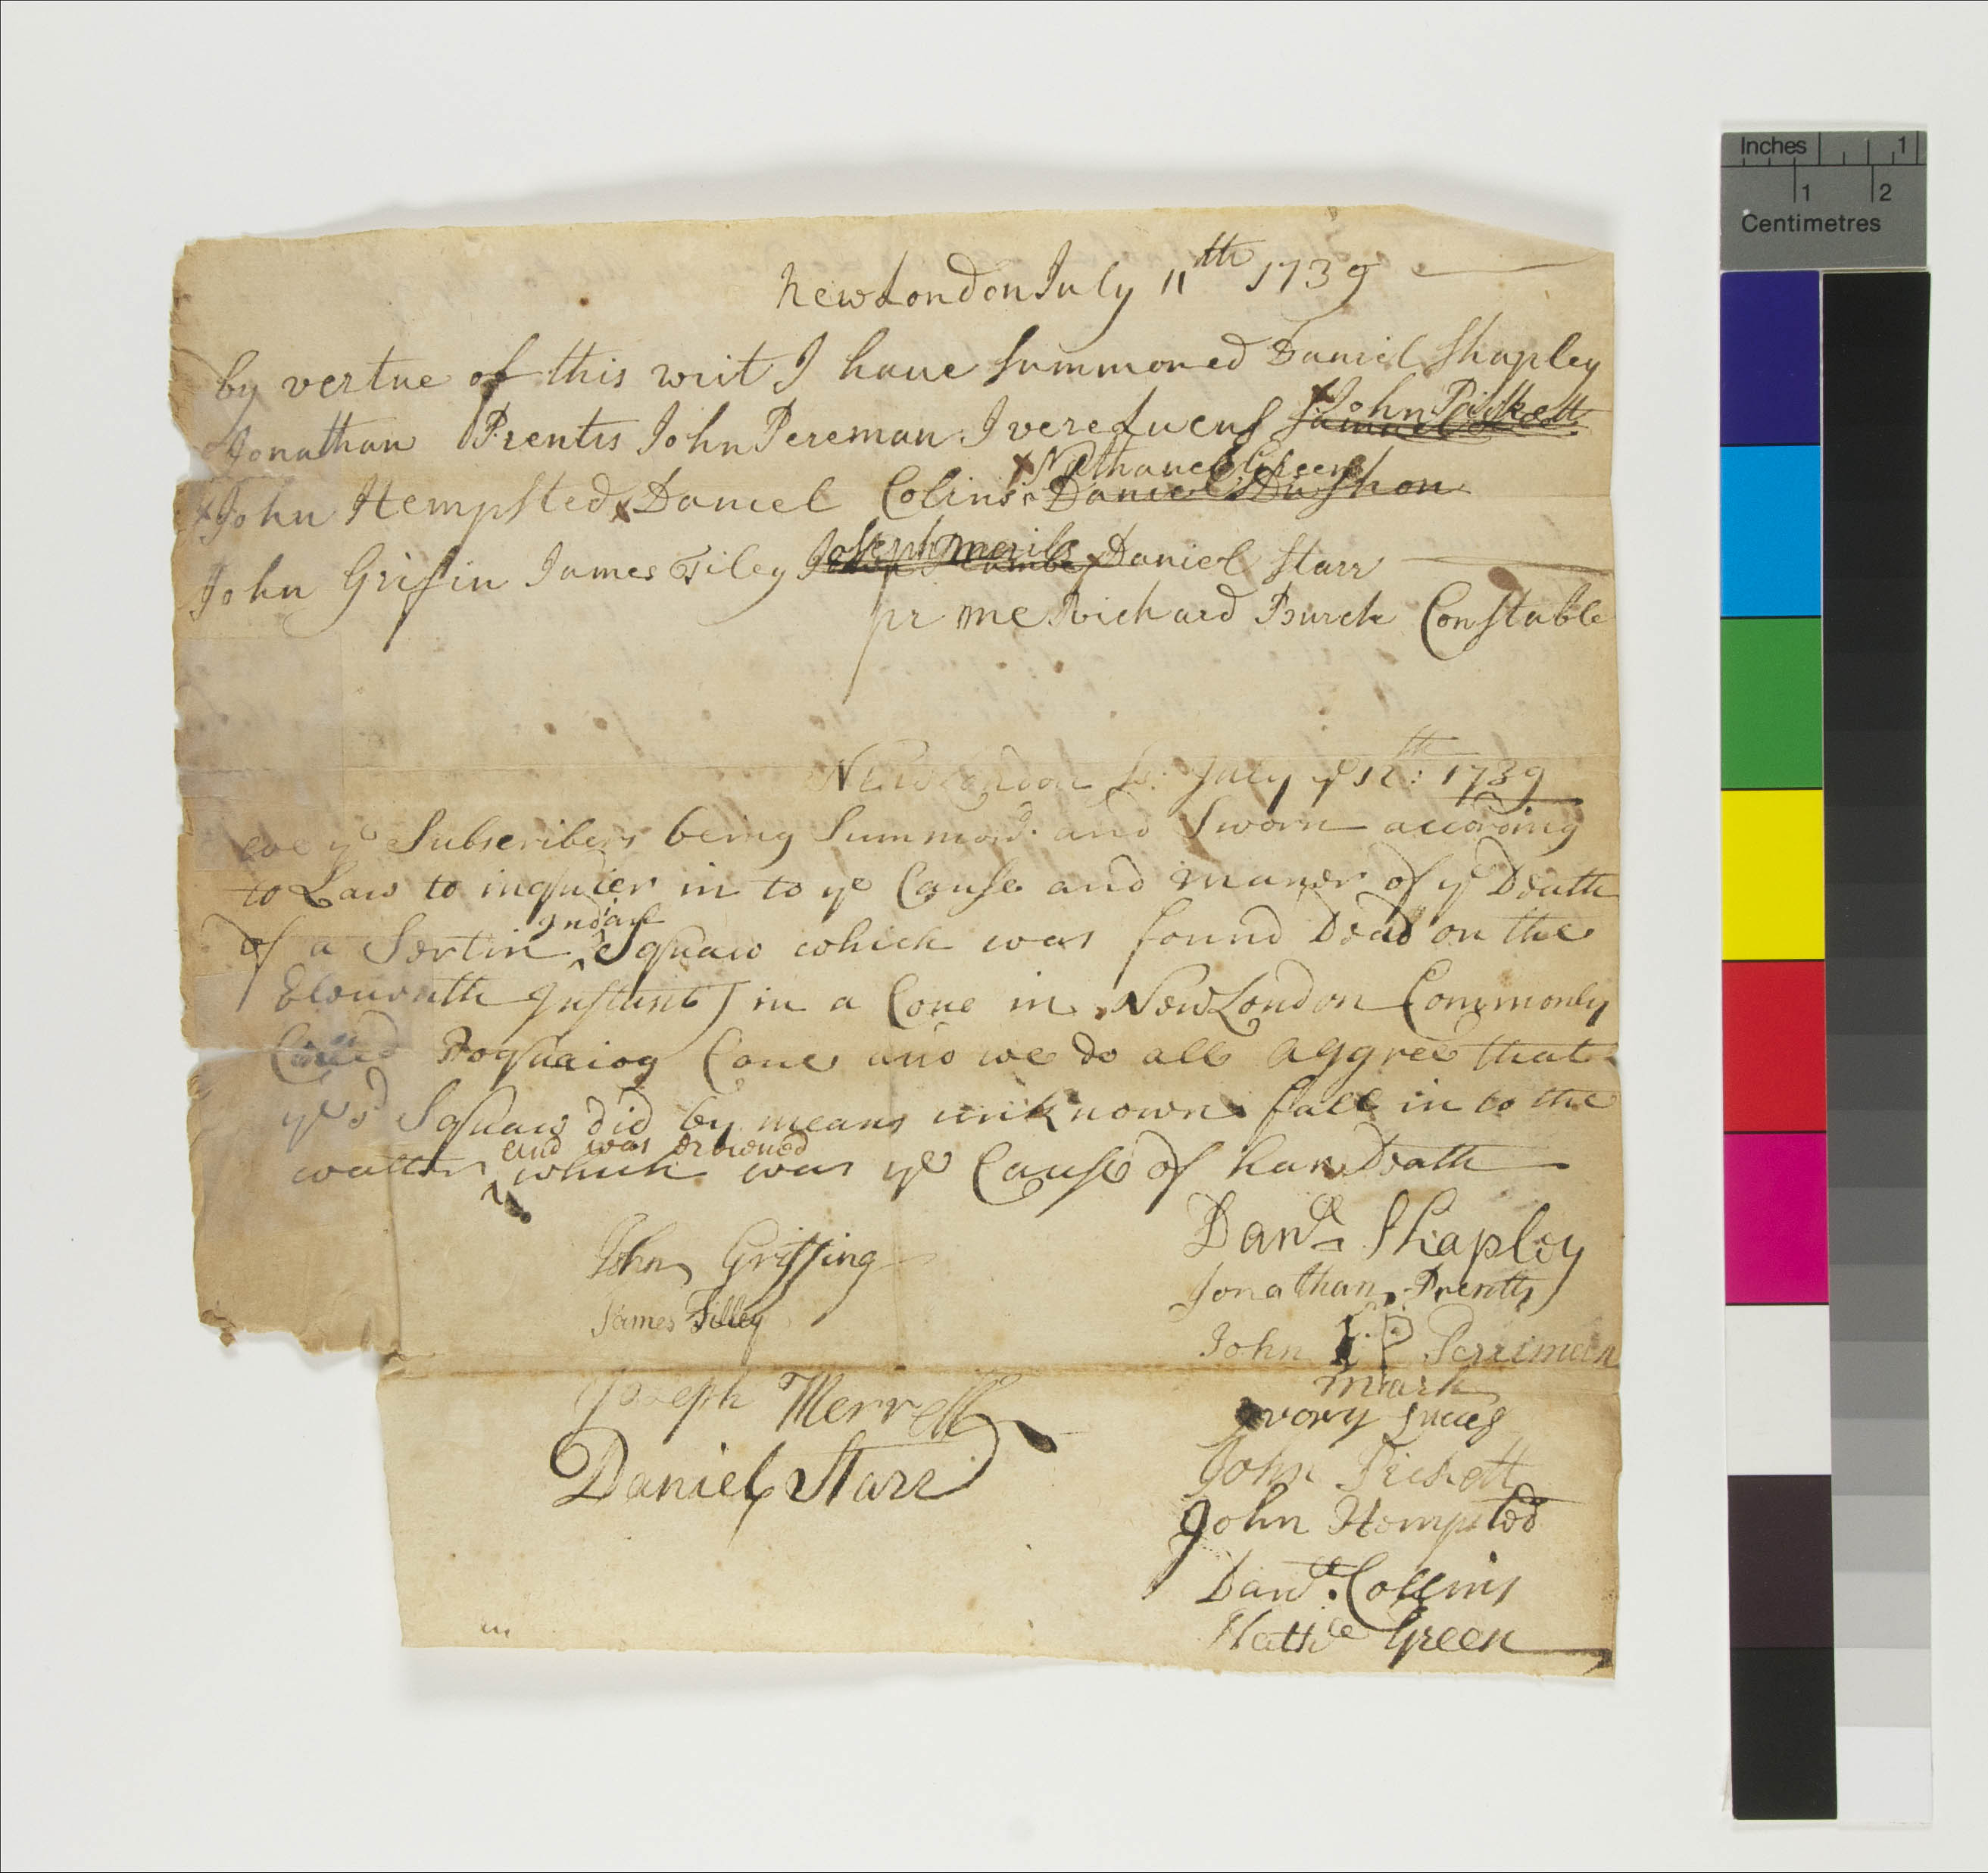 New London July 11th 1739
by vertue of this writ I have summoned Daniel Shapley
Jonathan Prentis John Pereman Ivere Lucus John Pickett
John Hempsted Daniel Colins Nathanel Green Daniel Dushon
John Grifin James Tiley Joseph Merils Daniel Starr
pr me Richard Burch Constable
New London Ss: July ye 12th: 1739
we ye Subscribers being Summond. and Sworn according
to Law to inquier in to ye Cause and maner of ye Death
of a Sertin ^ Indian Squaw which was found Dead on the
Eleventh Instant in a Cove in New London Commonly
Called Poquaiog Cove and we do all aggree that
ye sd Squaw did by means unknown fall in to the
watter ^ and was drowned which was ye Cause of har Death
Danll Shapley
Jonathan Prentis
John I P Perriman
mark
Ivory Lucus
John Pickett
John Hempsted
Danll. Collins
Nathll Green
John Griffing
James Tilley
Joseph Merrell
Daniel Starr
Inches 1
1 2
Centimetres